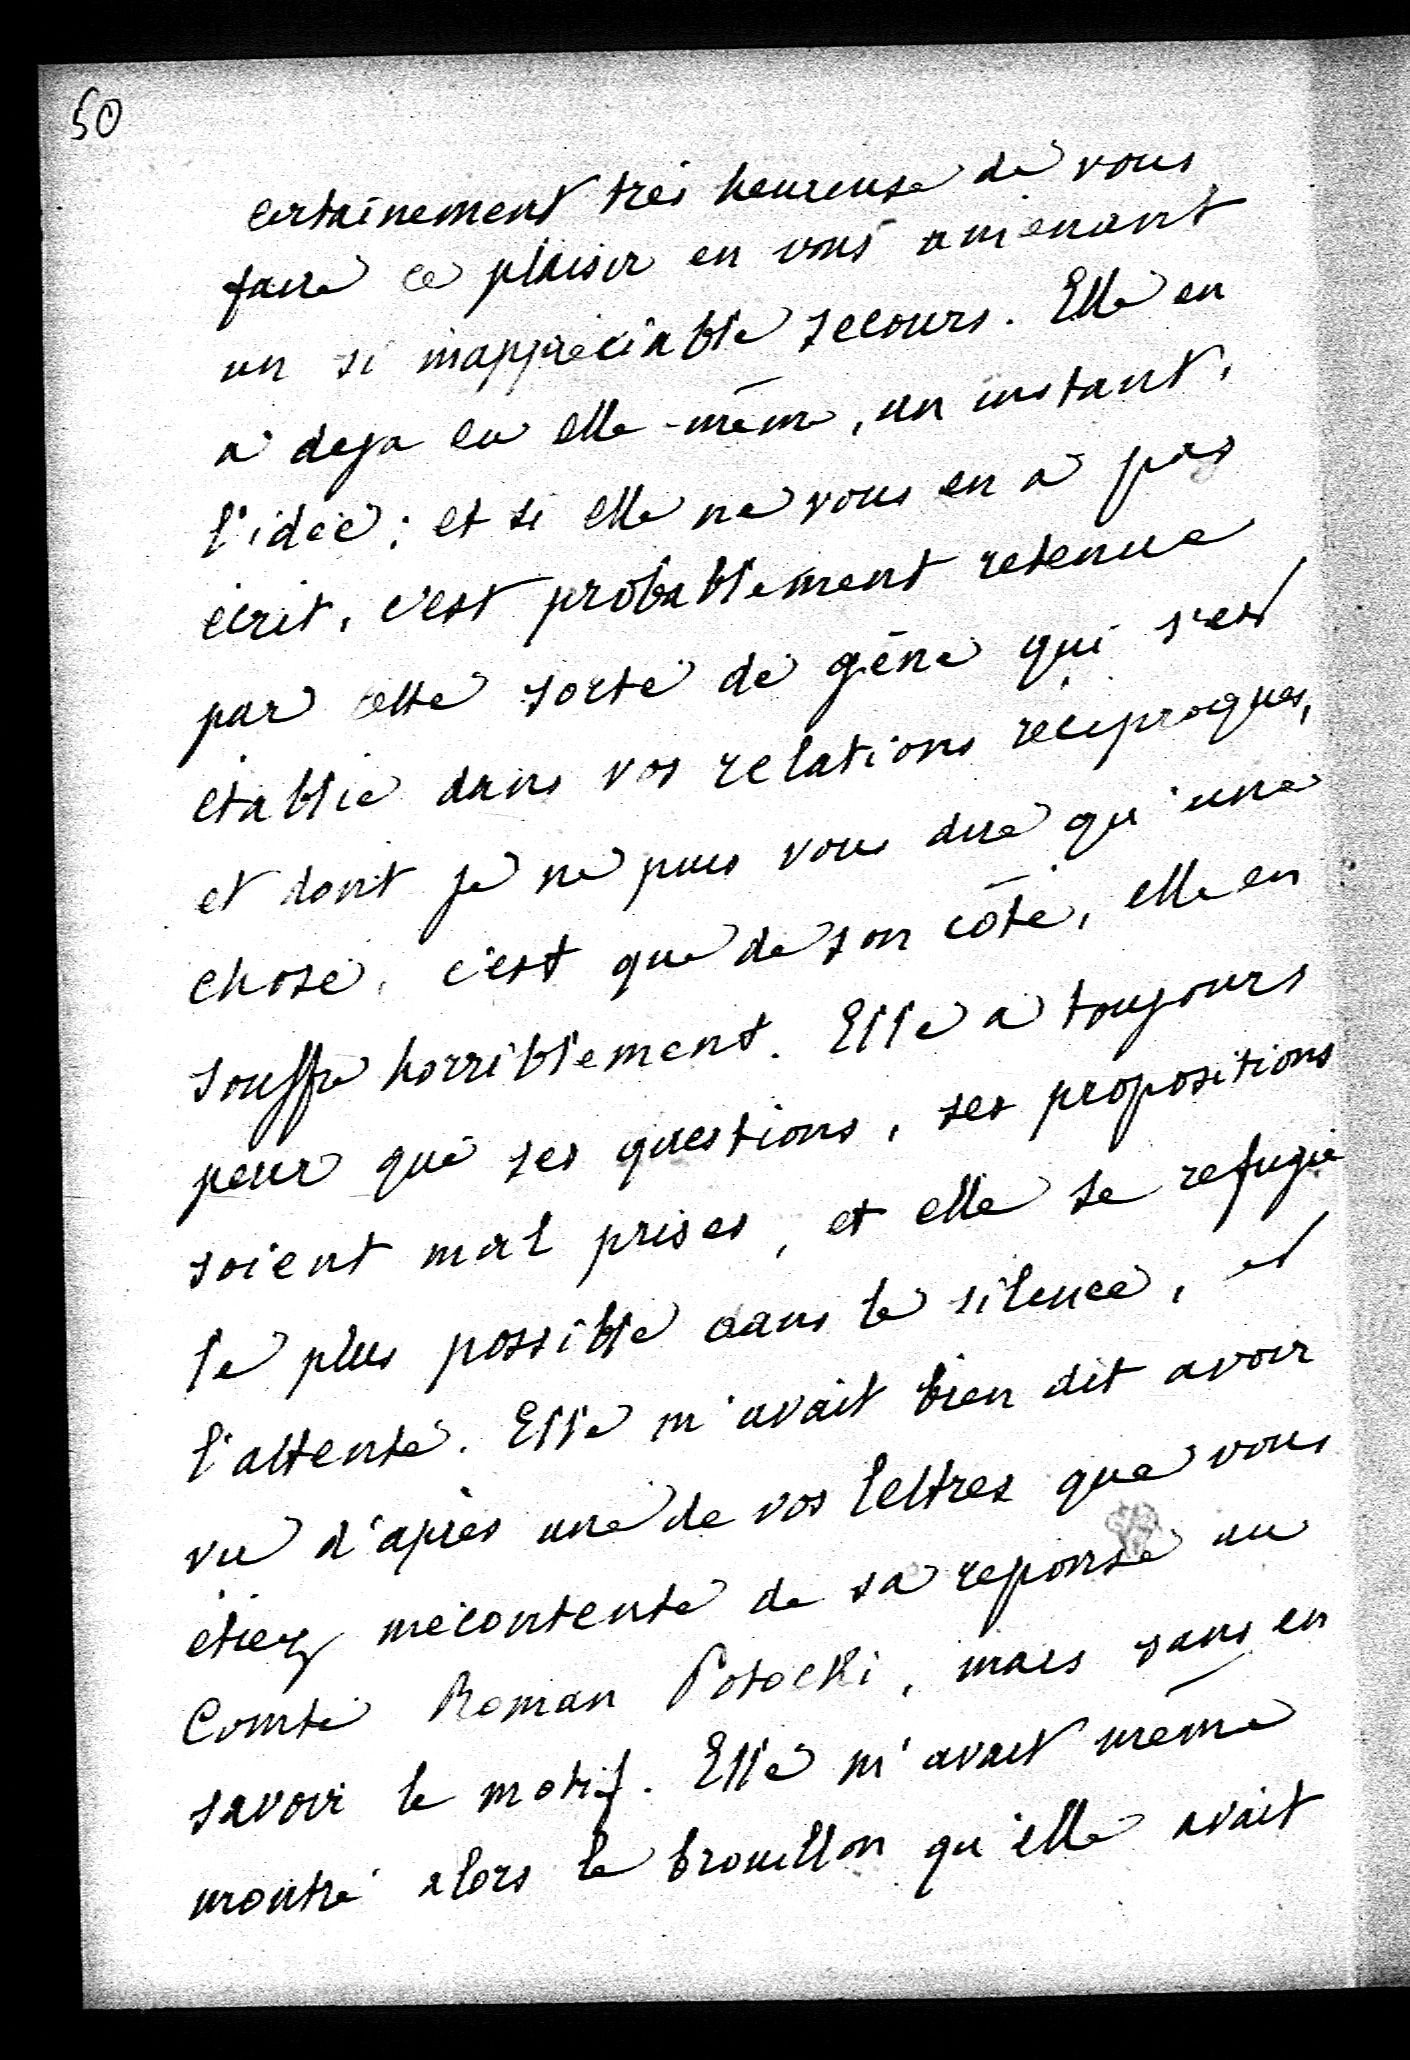 50
certainement très heureuse de vous
faire ce plaisir en vous amenant
un si inappréciable secours. Elle en
a deja eu elle-même, un instant,
l'idée ; et si elle ne vous en a pas
écrit, c'est probablement retenue
par cette sorte de gêne qui s'est
établie dans vos relations réciproques,
et dont je ne puis vous dire qu'une
chose, c'est que de son côté, elle en
souffre horriblement. Elle a toujours
peur que ses questions, ses propositions
soient mal prises, et elle se refugie
le plus possible dans le silence, et
l'attente. Elle m'avait bien dit avoir
vu d'après une de vos lettres que vous
étiez mécontente de sa reponse au
Comte Roman Potocki, mais sans en
savoir le motif. Elle m'avait même
montré alors le brouillon qu'elle avait